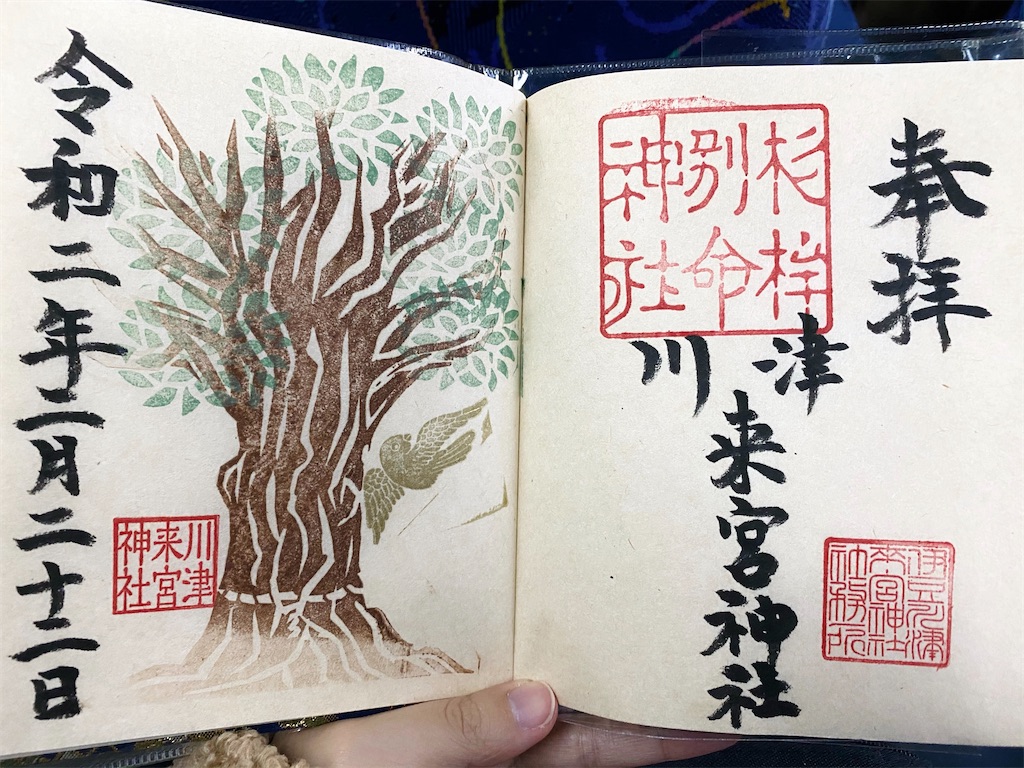 奉拝
杉桙
別命
神社
川津
来宮神社
伊豆川津
来宮神社
社務所
川津
来宮
神社
令和二年二月二十二日